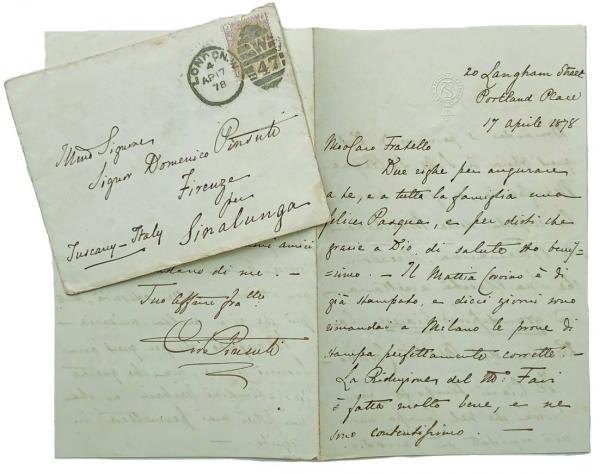 LONDON.W
4
AP17
78
W
47
Illmo Signore
Signor Domenico Pinsuti
Firenze
per
Sinalunga
Tuscany–Italy
amici
di me. –
Tuo affmo fratello
Ciro Pinsuti
20 Langham Street
Portland Place
17 aprile 1878
Mio Caro Fratello
Due righe per augurare
a te, e a tutta la famiglia una
felice Pasqua, e per dirti che
grazie a Dio, di salute sto benis=
=simo. – Il Mattia Corvino è di
già stampato, e dieci giorni sono
rimandai a Milano le prove di
stampa perfettamente corrette. –
La Riduzione del Mo. Fasi
è fatta molto bene, e ne
sono contentissimo. –